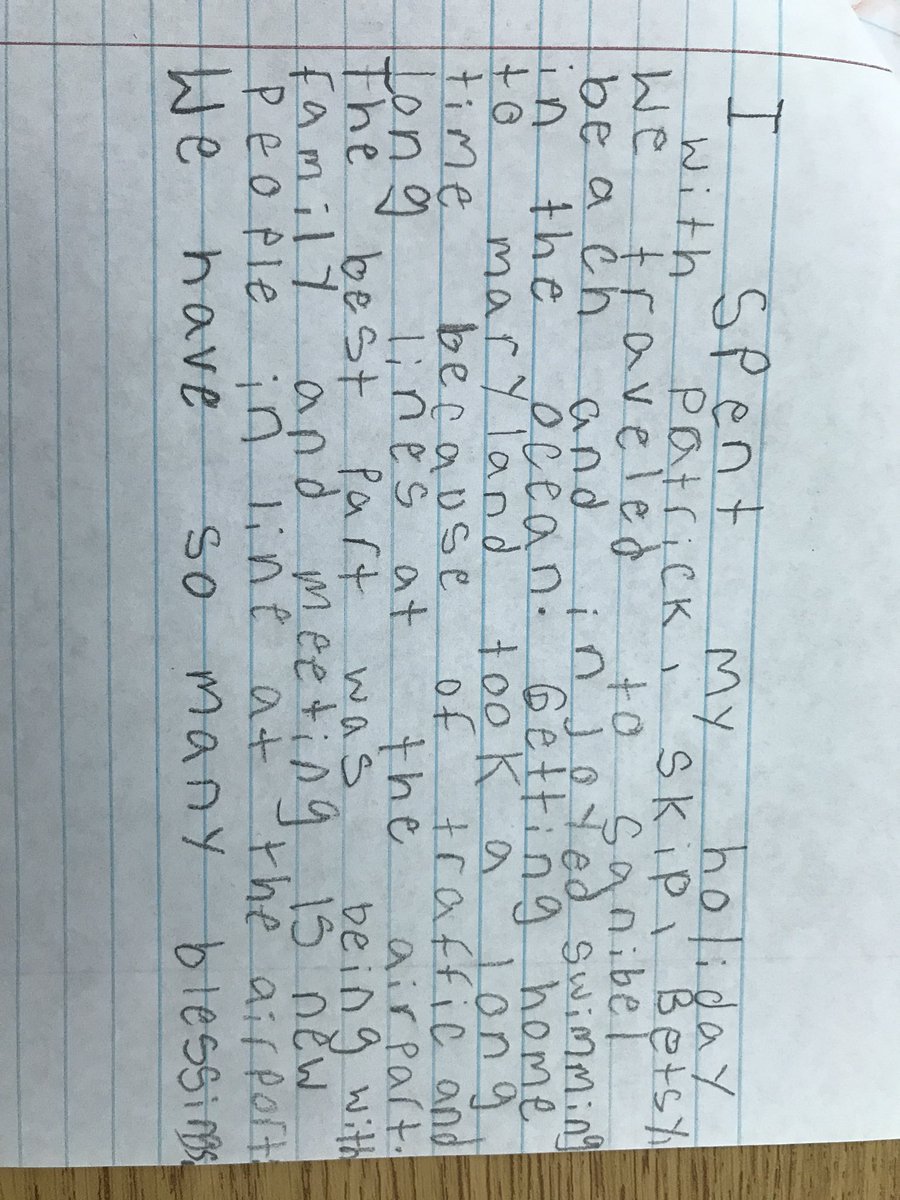 I spent my holiday
with patrick, skip, Betsy,
We traveled to Sanibel
beach and injoyed swimming
in the ocean. Getting home
to maryland took a long
time because of traffic and
long lines at the airpart.
The best part was being with
family and meeting 15 new
people in line at the airport.
We have so many blessings.